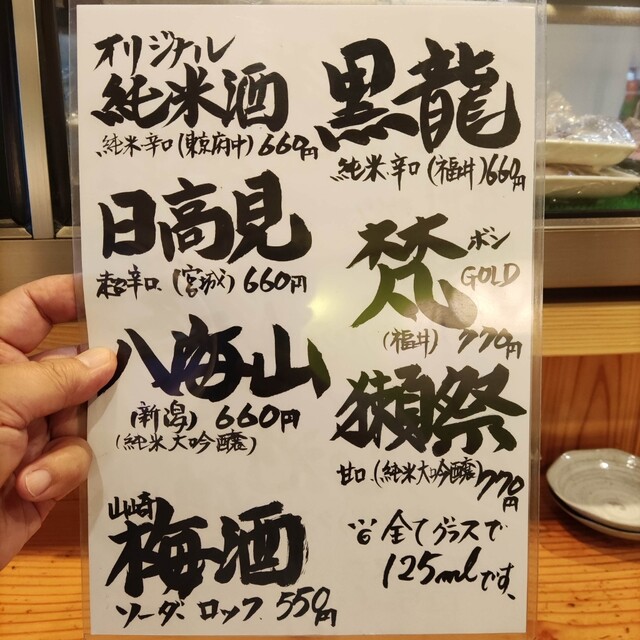 オリジナル
純米酒
純米辛口(東京府中)660円
黒龍
純米辛口(福井)660円
日高見
超辛口(宮城)660円
梵 ボン
GOLD
(福井) 770円
八海山
(新潟) 660円
(純米大吟醸)
獺祭
甘口(純米大吟醸)770円
山崎
梅酒
ソーダ、ロック 550円
全てグラスで
125mlです、